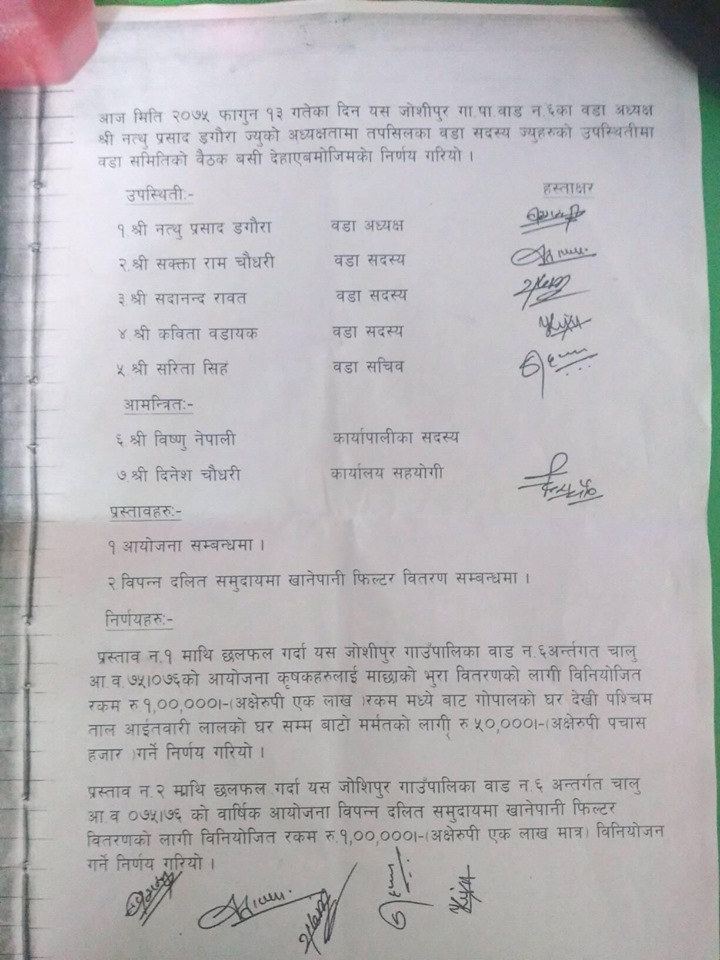 आज मिति २०७५ फागुन १३ गतेका दिन यस जोशीपुर गा.पा.वाड न.६का वडा अध्यक्ष
श्री नत्थु प्रसाद डगौरा ज्युको अध्यक्षतामा तपसिलका वडा सदस्य ज्युहरुको उपस्थितीमा
वडा समितिको बैठक बसी देहाएबमोजिमको निर्णय गरियो ।
उपस्थिती:- हस्ताक्षर
१.श्री नत्थु प्रसाद डगौरा वडा अध्यक्ष
२.श्री सक्ता राम चौधरी वडा सदस्य
३.श्री सदानन्द रावत वडा सदस्य
४ श्री कविता वडायक वडा सदस्य
५ श्री सरिता सिह वडा सचिव
आमन्त्रित:-
६ श्री विष्णु नेपाली कार्यापालीका सदस्य
७.श्री दिनेश चौधरी कार्यालय सहयोगी
प्रस्तावहरु:-
१ आयोजना सम्बन्धमा ।
२.विपन्न दलित समुदायमा खानेपानी फिल्टर वितरण सम्बन्धमा ।
निर्णयहरु:-
प्रस्ताव न.१ माथि छलफल गर्दा यस जोशीपुर गाउँपालिका वाड न.६अर्न्तगत चालु
आ.व.७५।०७६को आयोजना कृषकहरुलाई माछाको भुरा वितरणको लागी विनियोजित
रकम रु १,००,०००।-(अक्षेरुपी एक लाख )रकम मध्ये बाट गोपालको घर देखी पश्चिम
ताल आईतवारी लालको घर सम्म बाटो मर्मतको लागी रु ५०,०००।-(अक्षेरुपी पचास
हजार )गर्ने निर्णय गरियो ।
प्रस्ताव न.२ माथि छलफल गर्दा यस जोशिपुर गाउँपालिका वाड न.६ अन्तर्गत चालु
आ.व ०७५।७६ को वार्षिक आयोजना विपन्न दलित समुदायमा खानेपानी फिल्टर
वितरणको लागी विनियोजित रकम रु.१,००,०००।-(अक्षेरुपी एक लाख मात्र) विनियोजन
गर्ने निर्णय गरियो ।